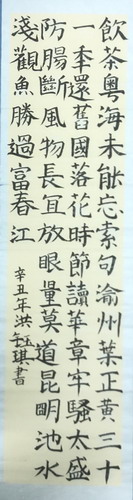 飲茶粵海未能忘索句渝州葉正黃三十
一年還舊國落花時節讀華章牢騷太盛
防腸斷風物長宜放眼量莫道昆明池水
淺觀魚勝過富春江
辛丑年洪鈺琪書